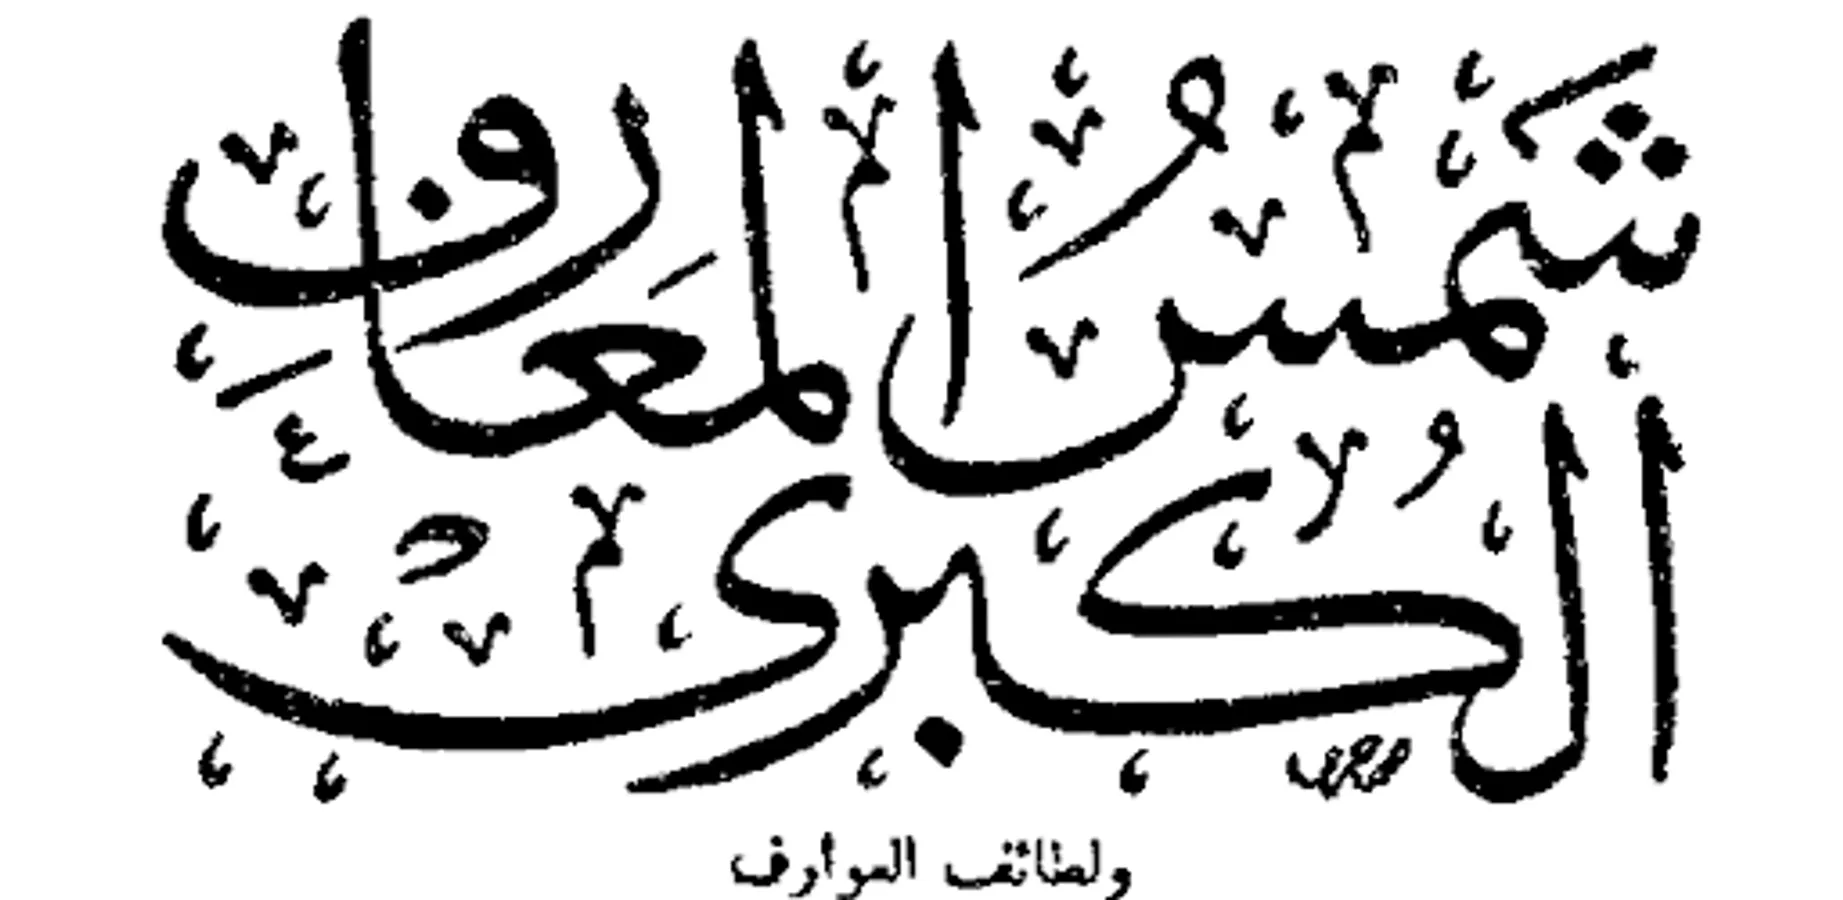 شمس المعارف
الكبرى
ولطائف العوارف